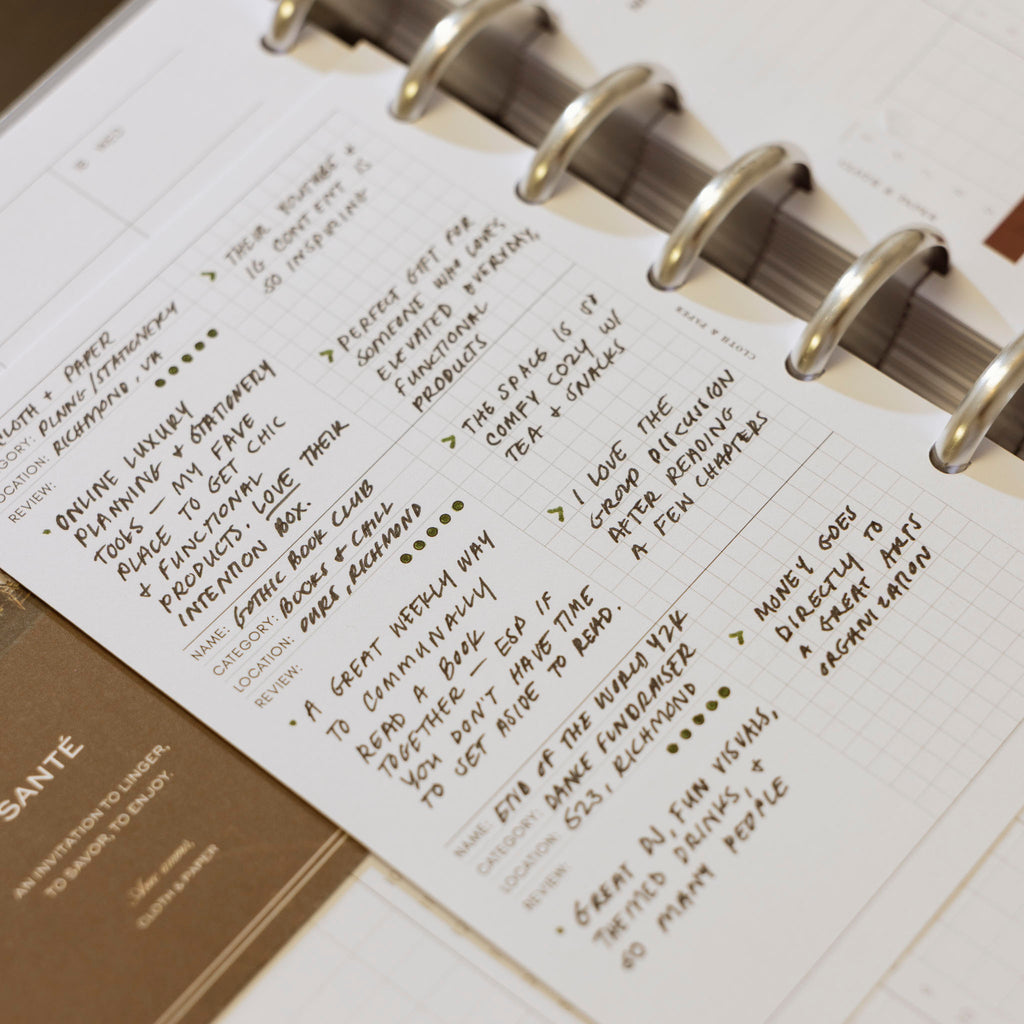 18 WED
CLOTH + PAPER
PLNNG/STATIONERY
LOCATION: RICHMOND, VA
REVIEW:
ONLINE LUXURY
PLANNING & STATIONERY
TOOLS — MY FAVE
PLACE TO GET CHIC
+ FUNCTIONAL
PRODUCTS. LOVE THEIR
INTENTION BOX.
> THEIR YOUTUBE +
IG CONTENT IS
SO INSPIRING
> PERFECT GIFT FOR
SOMEONE WHO LOVES
ELEVATED EVERYDAY,
FUNCTIONAL
PRODUCTS
NAME: GOTHIC BOOK CLUB
CATEGORY: BOOKS & CHILL
LOCATION: OURS, RICHMOND
REVIEW:
A GREAT WEEKLY WAY
TO COMMUNALLY
READ A BOOK
TOGETHER — ESP IF
YOU DON'T HAVE TIME
TO SET ASIDE TO READ.
> THE SPACE IS SO
COMFY COZY W/
TEA & SNACKS
> I LOVE THE
GROUP DISCUSSION
AFTER READING
A FEW CHAPTERS
NAME: END OF THE WORLD Y2K
CATEGORY: DANCE FUNDRAISER
LOCATION: S23, RICHMOND
REVIEW:
GREAT DJ, FUN VISUALS,
THEMED DRINKS, +
SO MANY PEOPLE
> MONEY GOES
DIRECTLY TO
A GREAT ARTS
ORGANIZATION
CLOTH & PAPER
SANTÉ
AN INVITATION TO LINGER,
TO SAVOR, TO ENJOY.
CLOTH & PAPER